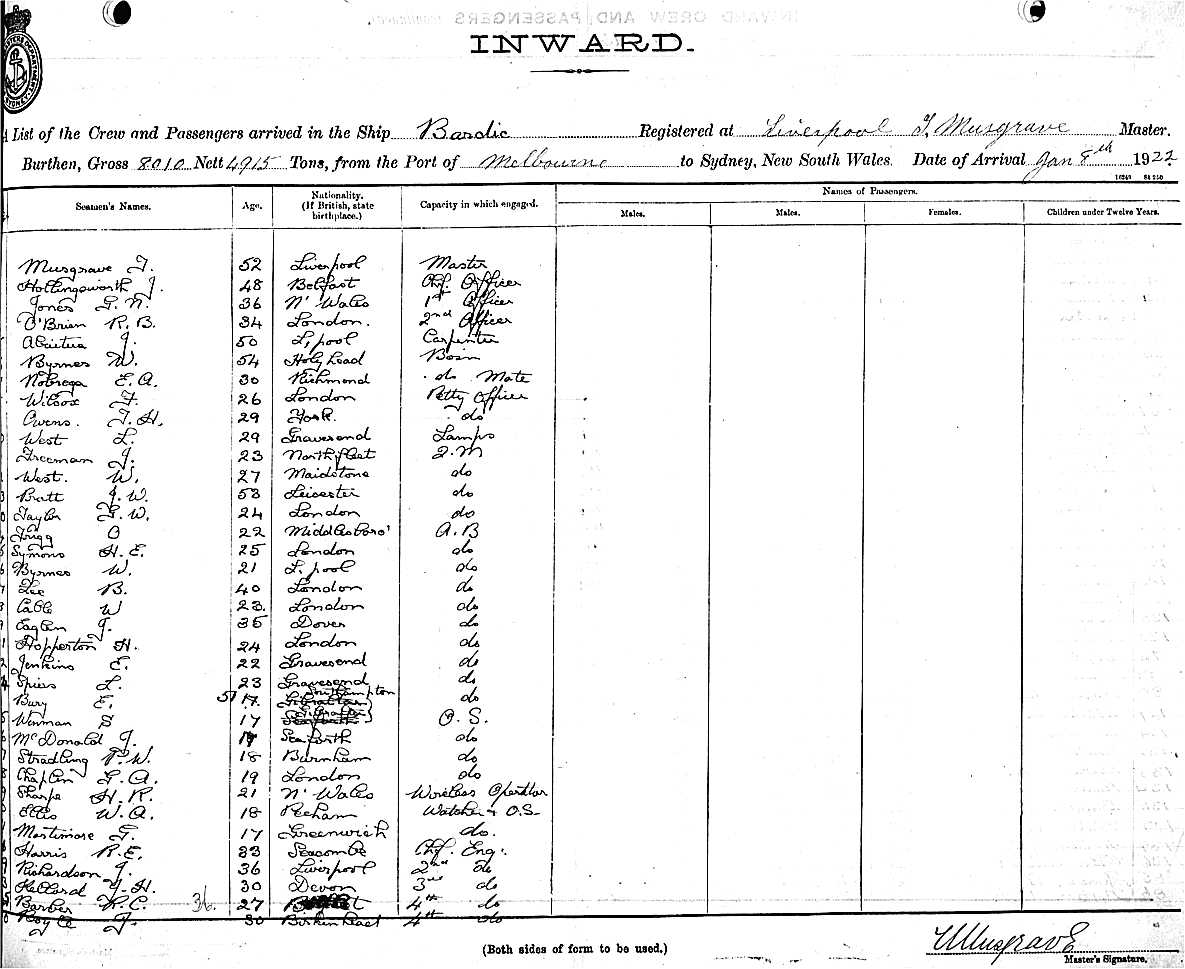 INWARD.
List of the Crew and Passengers arrived in the Ship Bardic Registered at Liverpool T. Musgrave Master.
Burthen, Gross 8010 Nett 4915 Tons, from the Port of Melbourne to Sydney, New South Wales. Date of Arrival Jan 8th 1922
Names of Passengers.
Seamen's Names. Age. Nationality. (If British, state birthplace.) Capacity in which engaged. Males. Males. Females. Children under Twelve Years.
Musgrave T. 52 Liverpool Master
Hollingsworth J. 48 Belfast Chf. Officer
Jones G. N. 36 N' Wales 1st Officer
O'Brien R. B. 34 London. 2nd Officer
J. 50 L'pool Carpenter
Byrnes W. 54 Holyhead Bosn
Nobrega E. A. 30 Richmond do Mate
Wilcox F. 26 London Petty Officer
Owens. T. H. 29 York. do
West L. 29 Gravesend Lamps
Freeman J. 23 Northfleet Q.M
West. W. 27 Maidstone do
Pratt J. W. 53 Leicester do
Taylor G. W. 24 London do
Trigg O 22 Middlesboro' A.B
Symons H. E. 25 London do
Byrnes W. 21 L'pool do
Lee B. 40 London do
Cable W 23. London do
Eaglen J. 35 Dover do
Hopperton H. 24 London do
Jenkins E. 22 Gravesend do
Spiers L. 23 Gravesend do
Southampton
Bury E. 51 17. Gibraltar do
Wenman S 17 O. S.
McDonald J. Seaforth do
Stradling P. W. 18 Burnham do
Chaplin L. A. 19 London do
Sharpe H. R. 21 N' Wales Wireless Operator
Ellis W. A. 18 Pecham Watcher + O.S.
Mortimore G. 17 Greenwich do.
Harris R. E. 33 Seacombe Chf. Eng.
Richardson J. 36 Liverpool 2nd do
Hellard J. H. 30 Devon 3rd do
Barber R. C. 36. 27 4th do
Boyle J. 30 Birkenhead 4th do
(Both sides of form to be used.)
T Musgrave
Master's Signature.